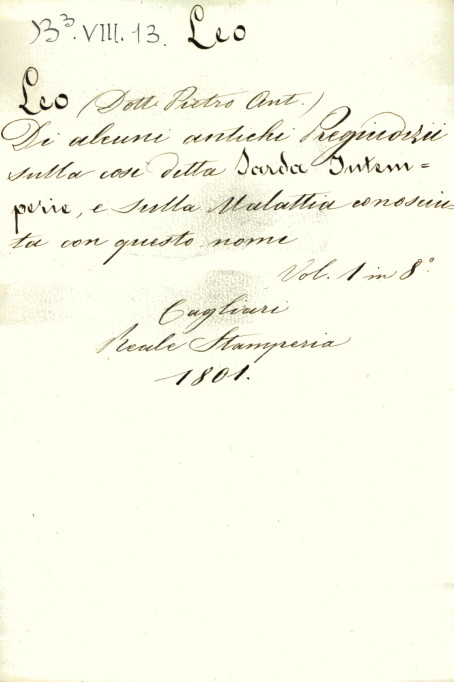 B³.VIII.13. Leo
Leo (Dott. Pietro Ant.)
Di alcuni antichi Pregiudizii
sulla così detta Sarda Intem=
perie, e sulla Malattia conosciu=
ta con questo nome
Vol. 1 in 8°
Cagliari
Reale Stamperia
1801.